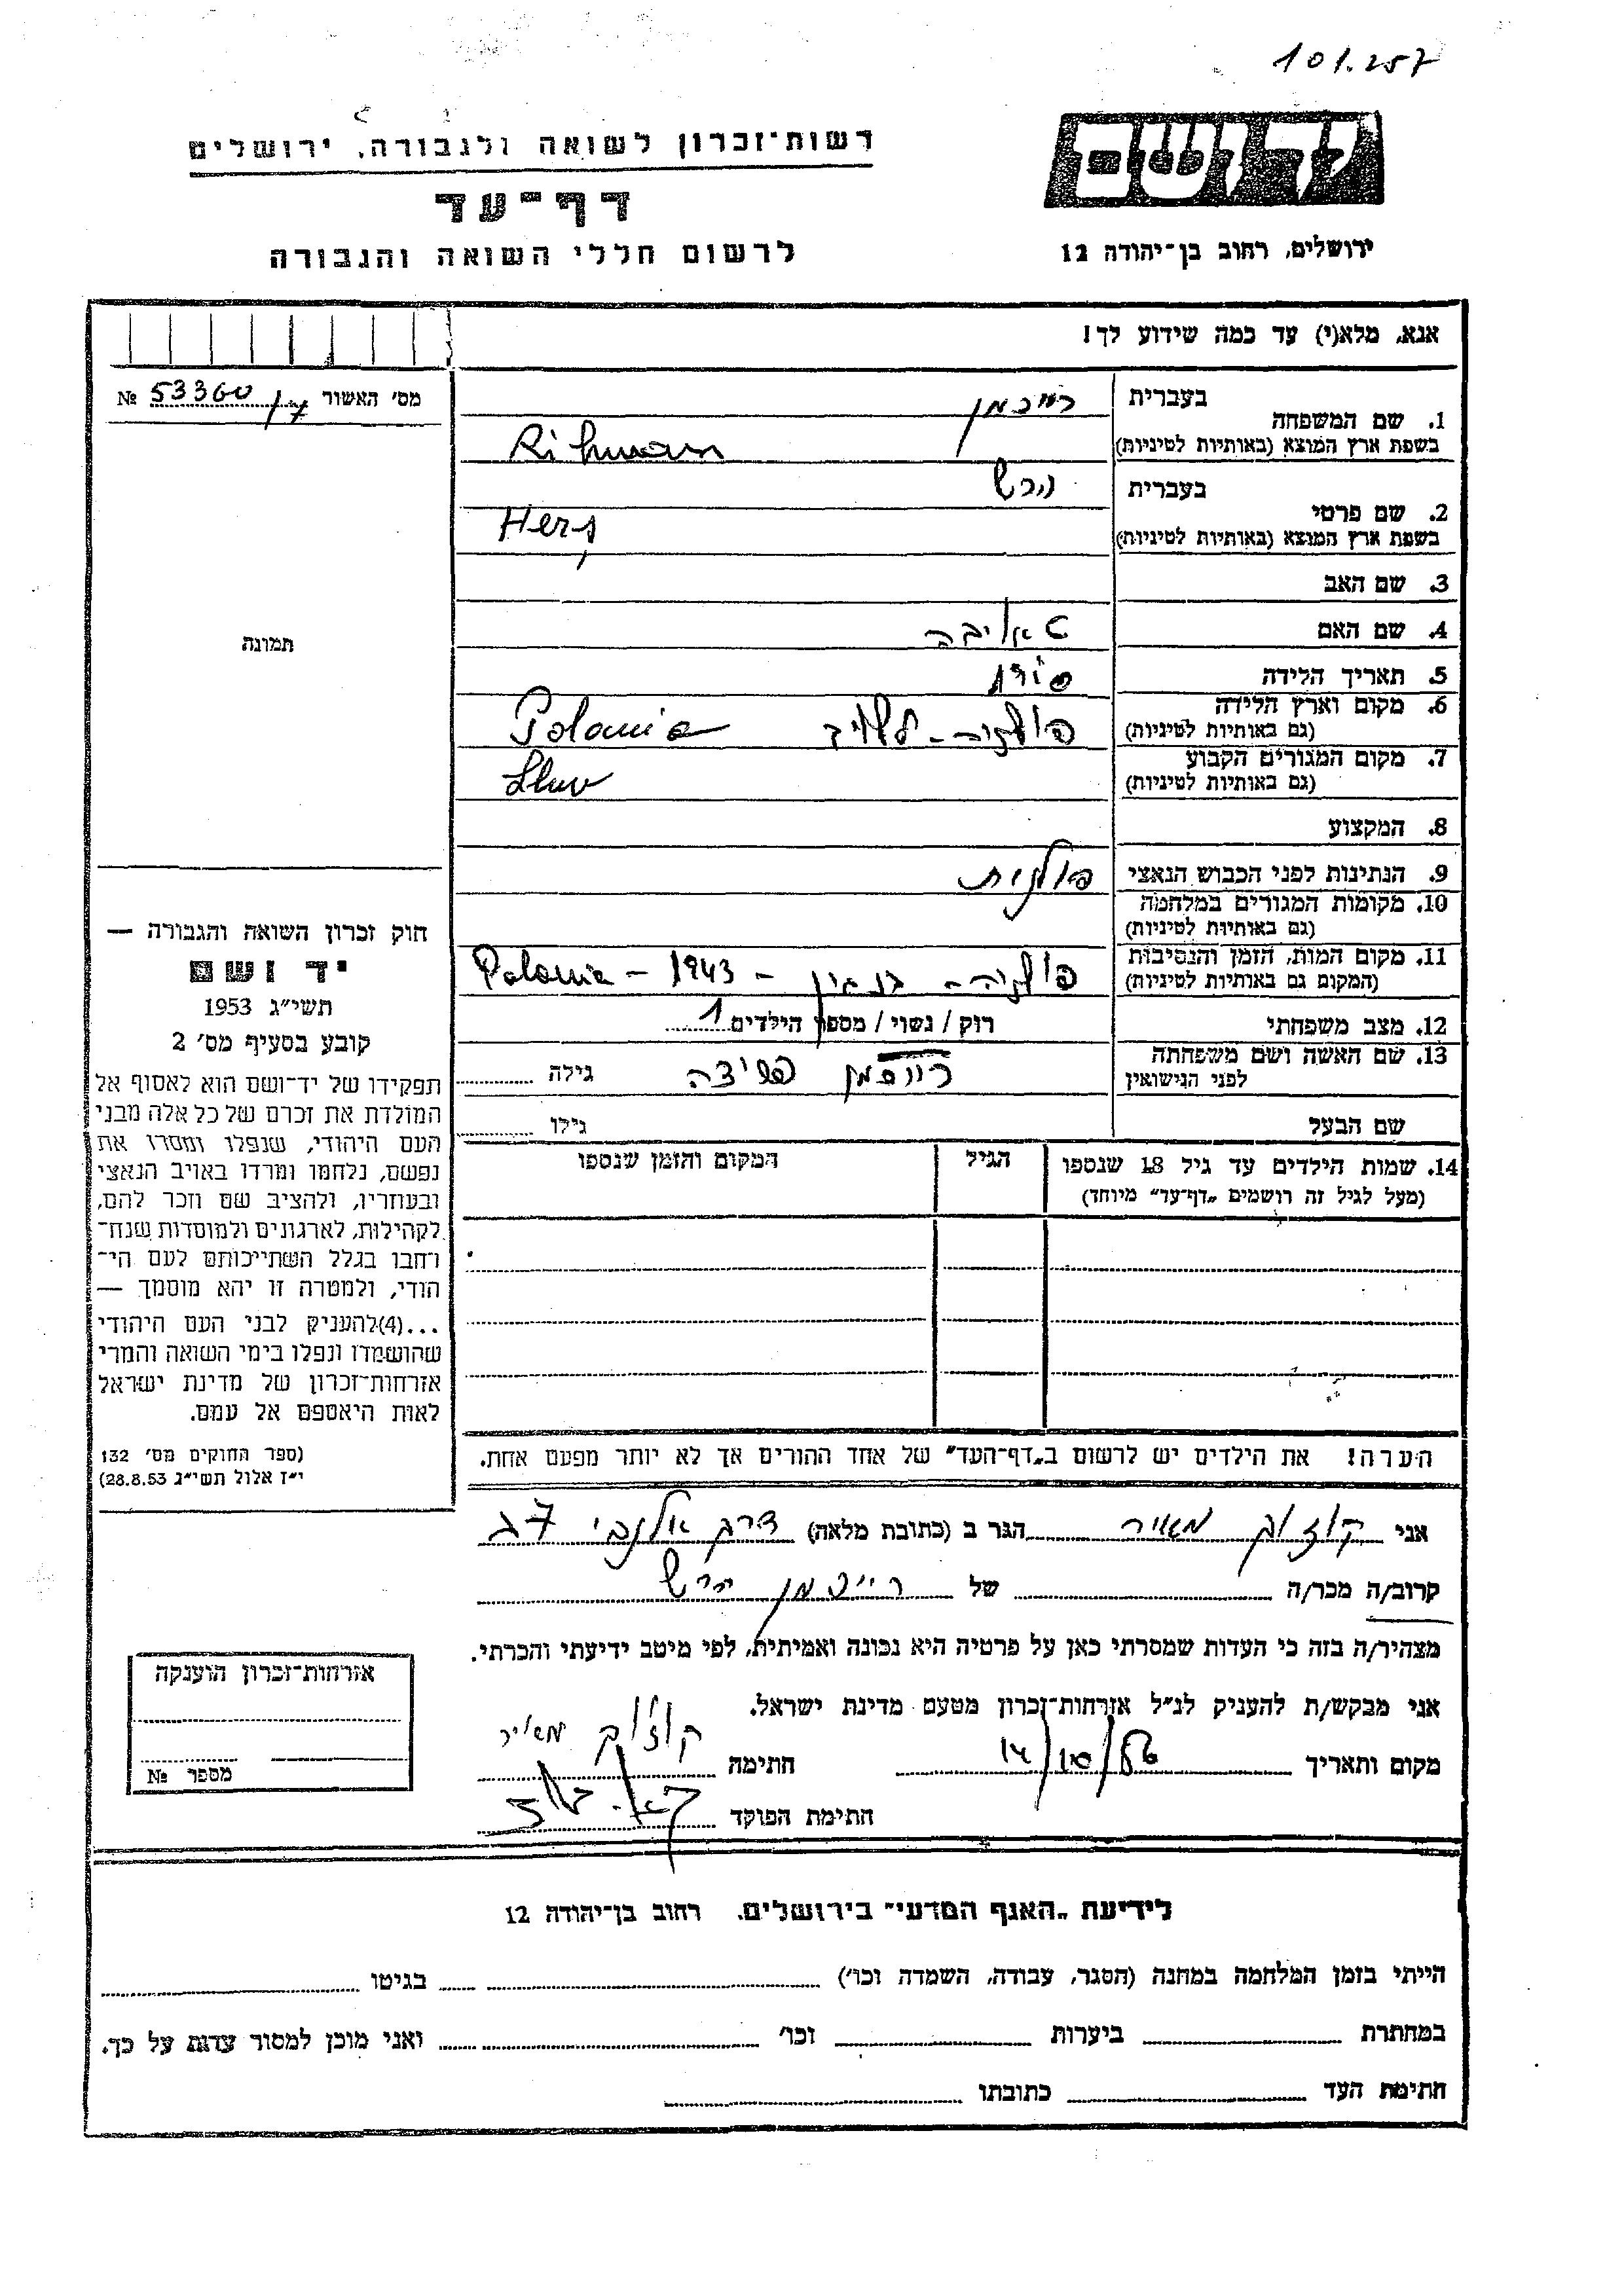 101.257
רשות־זכרון לשואה ולגבורה, ירושלים
דף־עד
לרשום חללי השואה והגבורה
יד ושם
ירושלים, רחוב בן־יהודה 12
אנא, מלא(י) עד כמה שידוע לך!
מס׳ האשור 53360 №
1. שם המשפחה
בעברית
בשפת ארץ המוצא (באותיות לטיניות)
Rihman
2. שם פרטי
בעברית הרש
בשפת ארץ המוצא (באותיות לטיניות)
Hers
3. שם האב
4. שם האם
5. תאריך הלידה
6. מקום וארץ הלידה
(גם באותיות לטיניות)
פולניה - Polania
7. מקום המגורים הקבוע
(גם באותיות לטיניות)
8. המקצוע
9. הנתינות לפני הכבוש הנאצי פולנית
10. מקומות המגורים במלחמה
(גם באותיות לטיניות)
11. מקום המות, הזמן והנסיבות
(המקום גם באותיות לטיניות)
פולניה - 1943 - Polania
12. מצב משפחתי רוק / נשוי / מספר הילדים 1
13. שם האשה ושם משפחתה
לפני הנישואין
גילה
שם הבעל גילו
14. שמות הילדים עד גיל 18 שנספו הגיל המקום והזמן שנספו
(מעל לגיל זה רושמים „דף־עד״ מיוחד)
הערה! את הילדים יש לרשום ב„דף־העד״ של אחד ההורים אך לא יותר מפעם אחת.
תמונה
חוק זכרון השואה והגבורה —
יד ושם
תשי״ג 1953
קובע בסעיף מס׳ 2
תפקידו של יד־ושם הוא לאסוף אל
המולדת את זכרם של כל אלה מבני
העם היהודי, שנפלו ומסרו את
נפשם, נלחמו ומרדו באויב הנאצי
ובעוזריו, ולהציב שם וזכר להם,
לקהילות, לארגונים ולמוסדות שנח־
רחבו בגלל השתייכותם לעם הי־
הודי, ולמטרה זו יהא מוסמך —
...(4)להעניק לבני העם היהודי
שהושמדו ונפלו בימי השואה והמרי
אזרחות־זכרון של מדינת ישראל
לאות היאספם אל עמם.
(ספר החוקים מס׳ 132
י״ז אלול תשי״ג 28.8.53)
אני מאיר הגר ב (כתובת מלאה) דרך אלנבי
קרוב/ה מכר/ה של הרש
מצהיר/ה בזה כי העדות שמסרתי כאן על פרטיה היא נכונה ואמיתית, לפי מיטב ידיעתי והכרתי.
אני מבקש/ת להעניק לנ״ל אזרחות־זכרון מטעם מדינת ישראל.
מקום ותאריך חתימה מאיר
חתימת הפוקד
אזרחות־זכרון הוענקה
מספר №
לידיעת „האגף המדעי״ בירושלים, רחוב בן־יהודה 12
הייתי בזמן המלחמה במחנה (הסגר, עבודה, השמדה וכו׳) בגיטו
במחתרת ביערות וכו׳ ואני מוכן למסור עדות על כך.
חתימת העד כתובתו